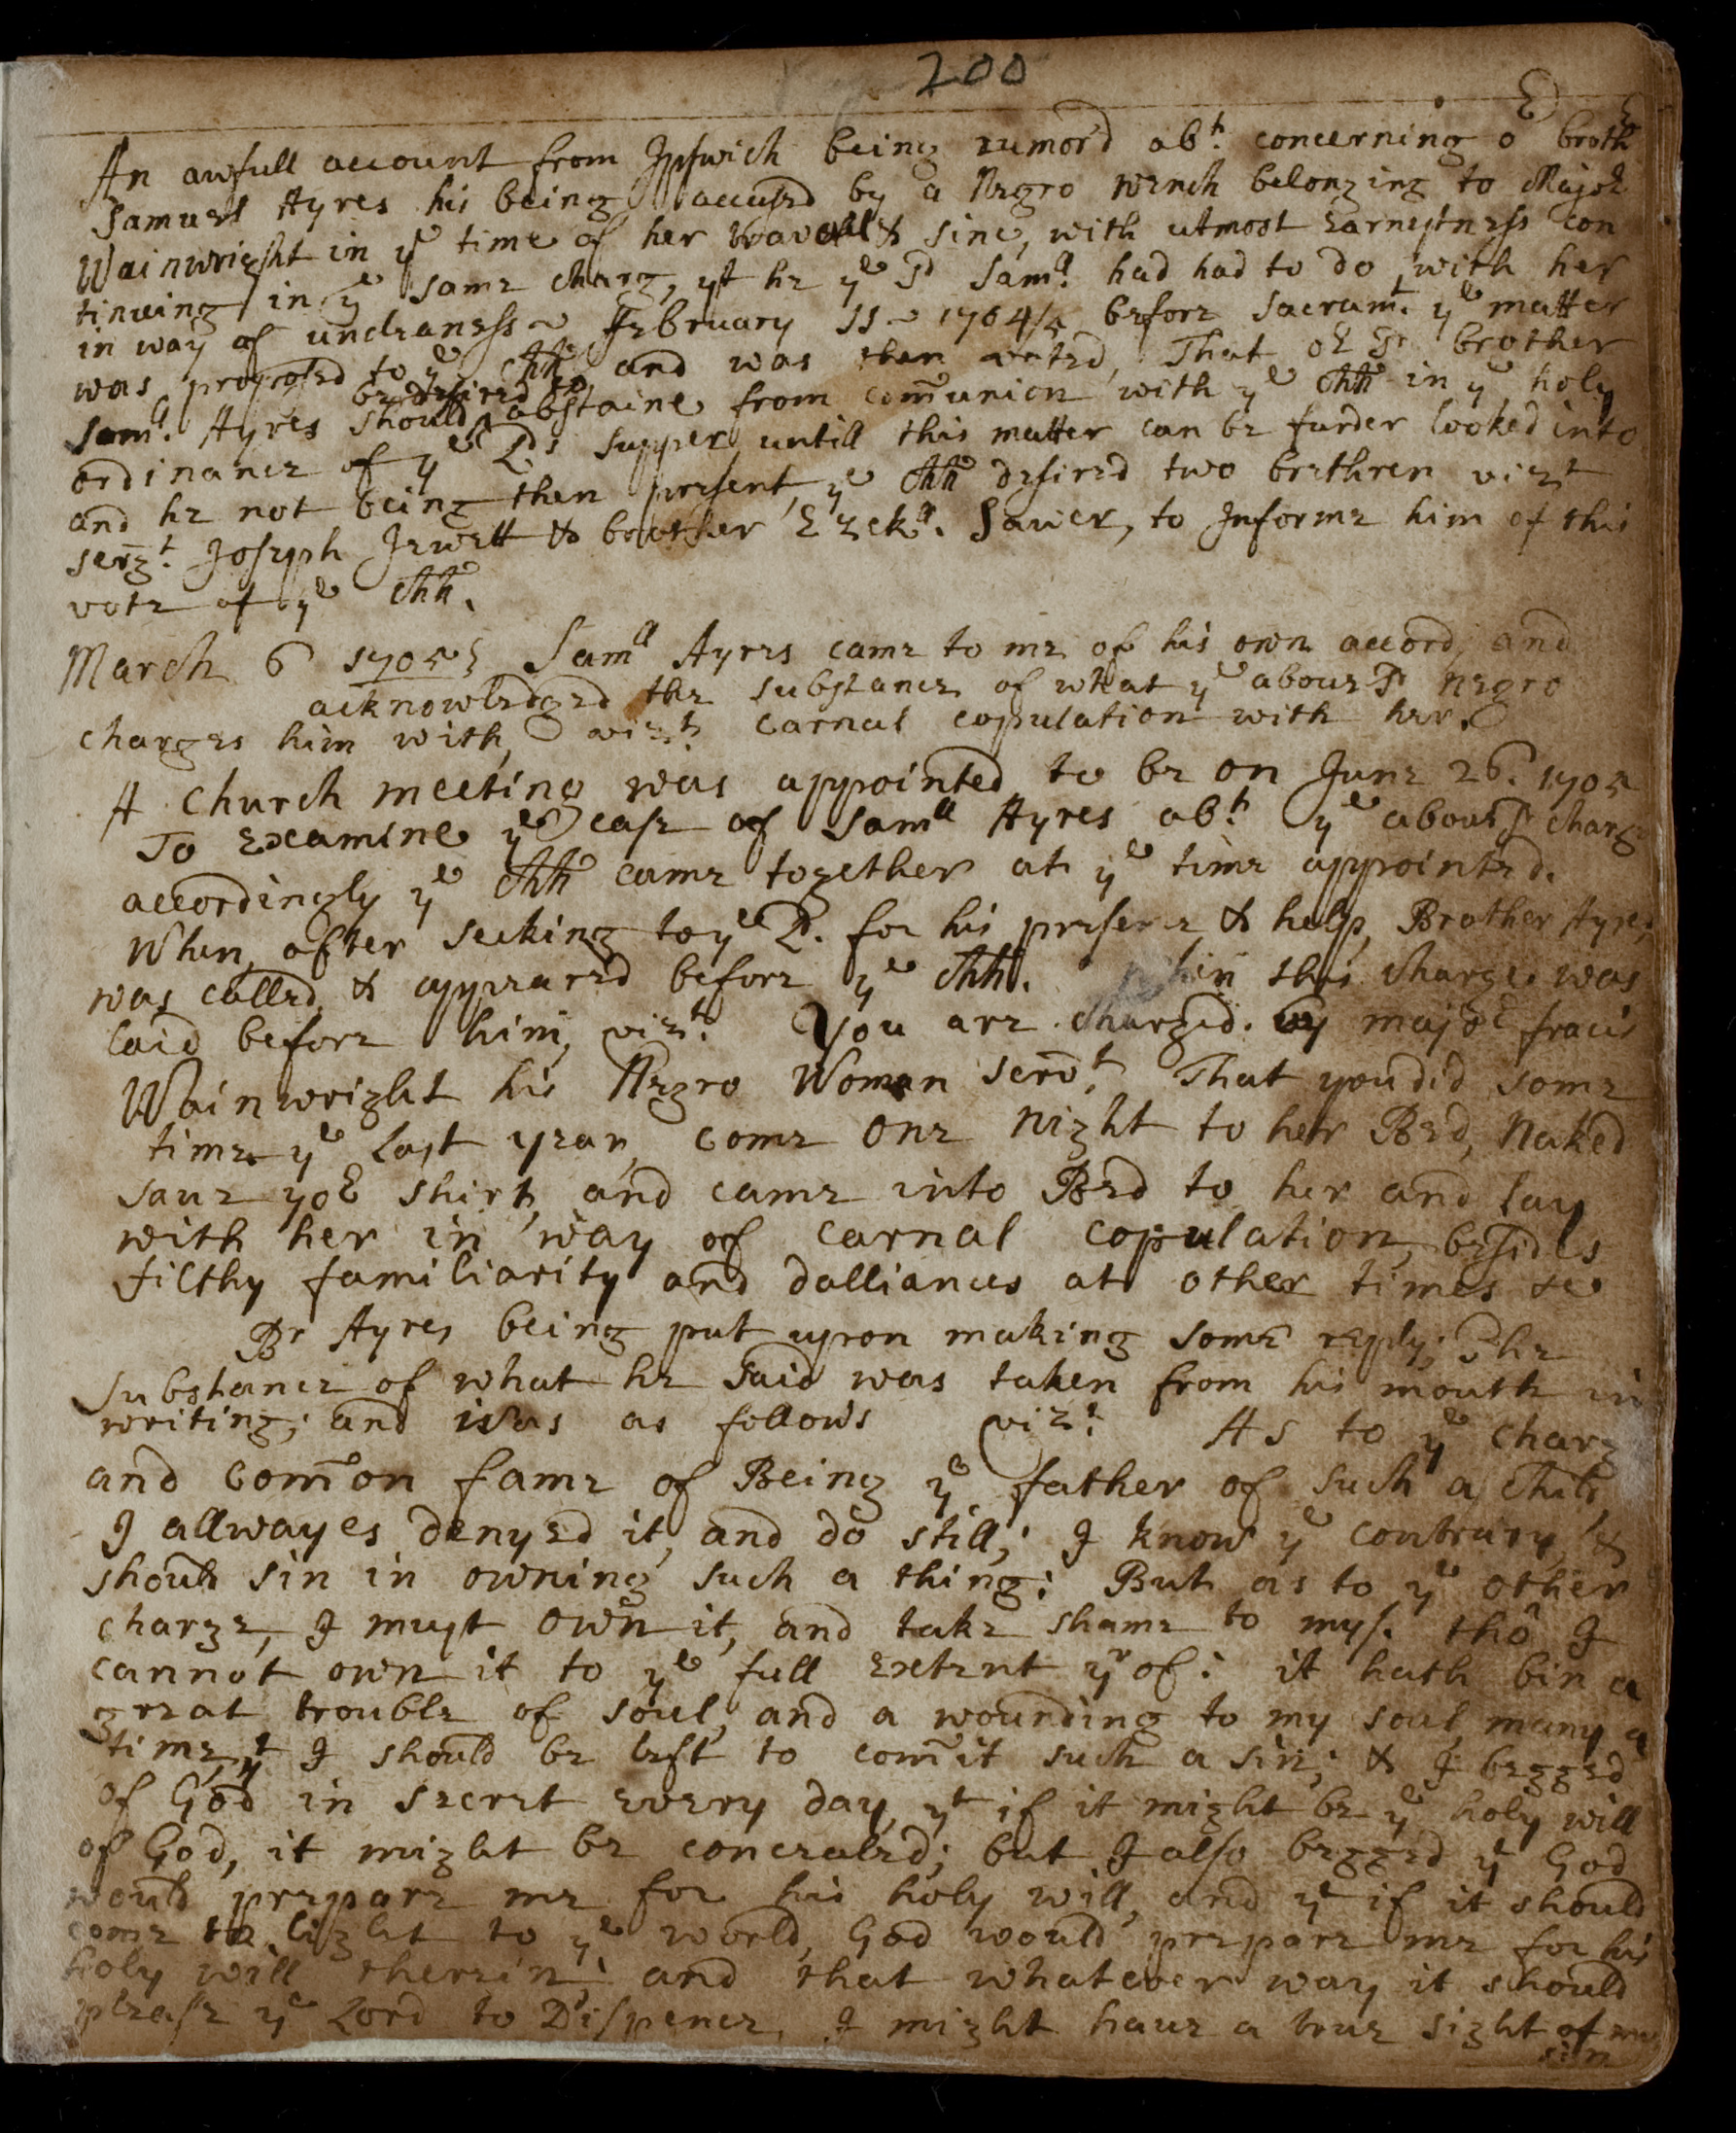 200
An awfull account from Ipswich being rumord abt. concerning or brothr
Samuel Ayres his being accused by a Negro wench belonging to Major
Wainwright in ye time of her travell & sinc, with utmost earnestness con
tinuing in ye same charg, yt he ye sd Samll. had had to do with her
in way of uncleaness ~ February 11 ~ 1704/5 before Sacramt. ye matter
was proposed to ye Chh and was then voted, That or sd brother
be desired to
Samll. Ayres should abstaine from comunion with ye Chh in ye holy
ordinance of ye Lds supper, untill this matter can be furder looked into
and he not being then present, ye Chh desired two brethren vizt
sergt. Joseph Jewett & brother Ezekll. Sawer, to Informe him of this
vote of ye Chh.
March 6 1705 Samll Ayres came to me of his own accord, and
acknowledged the substance of what ye above sd negro
charges him with, vizt. carnal copulation with her.
A church meeting was appointed to be on June 26. 1705
To examine ye case of Samll Ayres abt. ye above sd charge
accordingly ye Chh came together at ye time appointed.
When, after seeking to ye Ld. for his presence & help, Brother Ayres
was called, & appeared before ye Chh. when this charge was
laid before him, vizt. You are charged by major fracis
Wainwright his Negro Woman servt. That you did some
time ye last year, come one night to her Bed, Naked
saue yor shirt, and came into Bed to her and lay
with her in way of carnal copulation, besides
filthy familiarity and dalliances at other times &c
Br Ayres being put upon making some reply; The
substance of what he said was taken from his mouth in
writing; and was as follows vizt. As to ye charg
and comon fame of Being ye father of such a child,
I allwayes denyed it, and do still; I know ye contrary, &
should sin in owning such a thing: But as to ye other
charge, I must own it, and take shame to mys. thô I
cannot own it to ye full extent yrof: it hath bin a
great trouble of soul, and a wounding to my soul many a
time, yt I should be left to comit such a sin; & I begged
of God in secret every day, yt if it might be ye holy will
of God, it might be concealed; but I also begged yt God
would prepare me for his holy will, and yt if it should
come to light to ye world, God would prepare me for his
holy will therein; and that whatever way it should
please ye Lord to Dispence, I might haue a true sight of my
sin